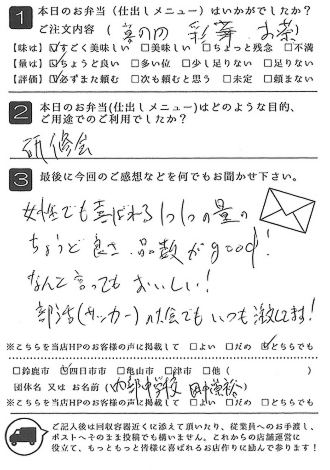 1 本日のお弁当(仕出しメニュー)はいかがでしたか?
ご注文内容 ( 喜の口 彩 お茶 )
【味は】☑すごく美味しい □美味しい □ちょっと残念 □不満
【量は】☑ちょうど良い □多い位 □少し足りない □足りない
【評価】☑必ずまた頼む □次も頼むと思う □未定 □頼まない
2 本日のお弁当(仕出しメニュー)はどのような目的、
ご用途でのご利用でしたか?
研修会
3 最後に今回のご感想などを何でもお聞かせ下さい。
女性でも喜ばれる1つ1つの量の
ちょうど良さ 品数がgood!
なんと言っても おいしい!
部活(サッカー)の大会でもいつも注文してます!
※こちらを当店HPのお客様の声に掲載して □よい □だめ ☑どちらでも
□鈴鹿市 ☑四日市市 □亀山市 □津市 □他 ( )
団体名 又は お名前 ( 中学校 田中 )
※こちらを当店HPのお客様の声に掲載して □よい □だめ ☑どちらでも
ご記入後は回収容器近くに添えて頂いたり、従業員へのお手渡し、
ポストへそのまま投稿でも構いません。これからの店舗運営に
役立て、もっともっと皆様に喜ばれるお店作りに励んで参ります!